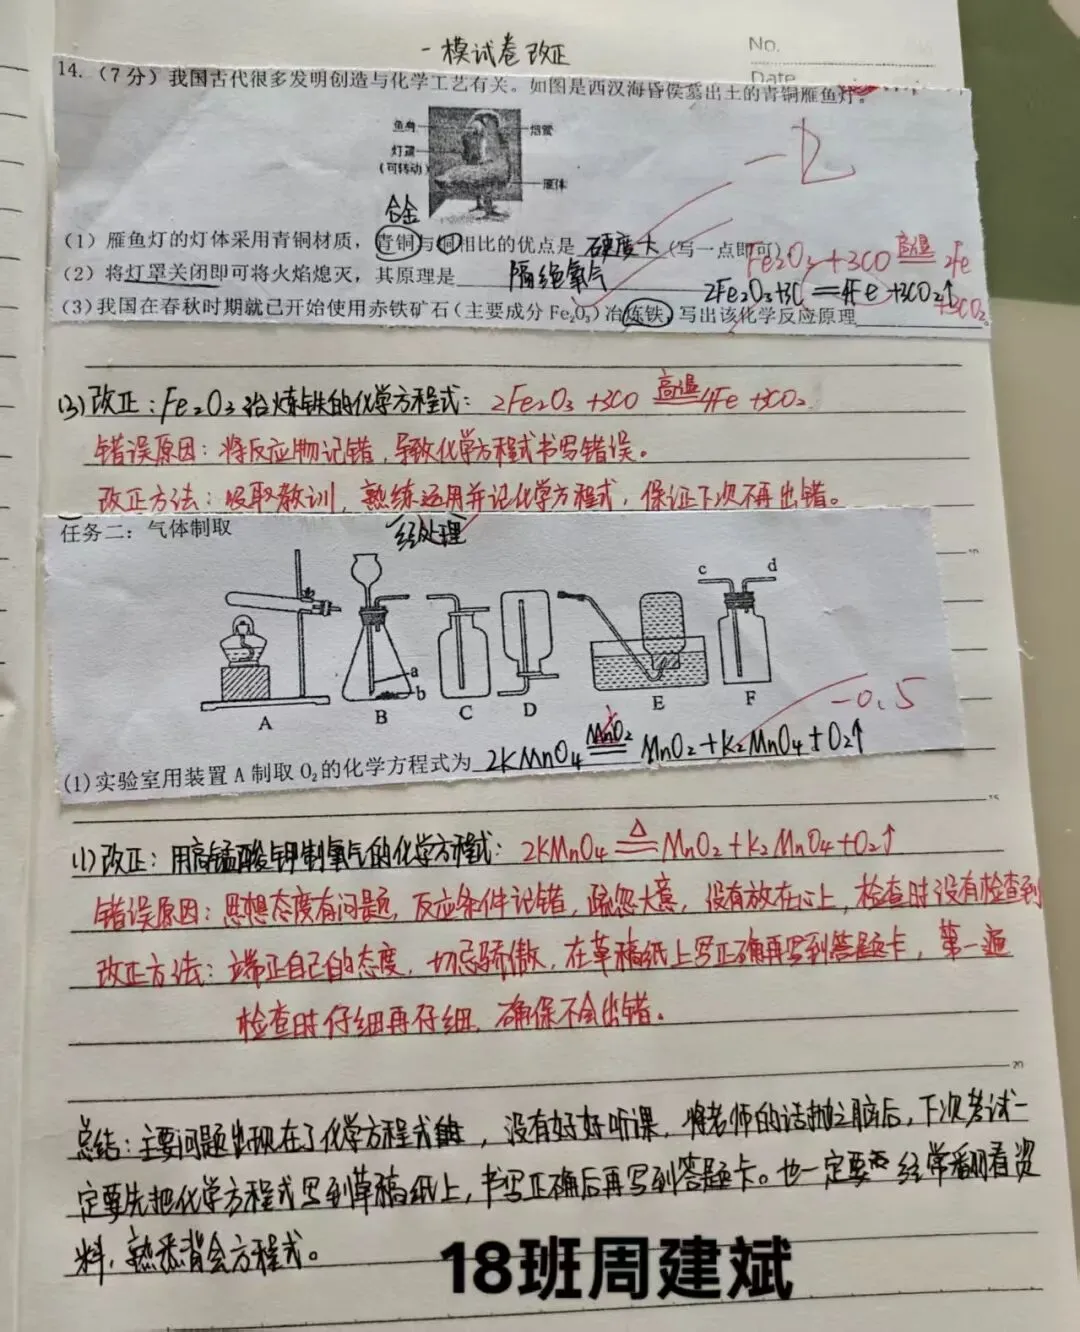 一模试卷改正
No.
Date
14.（7分）我国古代很多发明创造与化学工艺有关。如图是西汉海昏侯墓出土的青铜雁鱼灯。
鱼身
烟管
灯罩
（可转动）
雁体
-2
合金
（1）雁鱼灯的灯体采用青铜材质，青铜与铜相比的优点是 硬度大（写一点即可）
Fe₂O₃+3CO 高温 2Fe+3CO₂
（2）将灯罩关闭即可将火焰熄灭，其原理是 隔绝氧气
2Fe₂O₃+3C＝4Fe+3CO₂↑
（3）我国在春秋时期就已开始使用赤铁矿石（主要成分Fe₂O₃）冶炼铁，写出该化学反应原理
(3)改正：Fe₂O₃冶炼铁的化学方程式：2Fe₂O₃+3CO 高温 4Fe+3CO₂
错误原因：将反应物记错，导致化学方程式书写错误。
改正方法：吸取教训，熟练运用并记化学方程式，保证下次不再出错。
任务二：气体制取
经处理
c d
a
b
A B C D E F
-0.5
(1)实验室用装置A制取O₂的化学方程式为 2KMnO₄ MnO₂ MnO₂+K₂MnO₄+O₂↑
(1)改正：用高锰酸钾制氧气的化学方程式：2KMnO₄ △ MnO₂+K₂MnO₄+O₂↑
错误原因：思想态度有问题，反应条件记错，疏忽大意，没有放在心上，检查时没有检查到
改正方法：端正自己的态度，切忌骄傲，在草稿纸上写正确再写到答题卡，第一遍
检查时仔细再仔细，确保不会出错。
总结：主要问题出现在了化学方程式，没有好好听课，将老师的话抛之脑后，下次考试一
定要先把化学方程式写到草稿纸上，书写正确后再写到答题卡。也一定要经常翻看资
料，熟悉背会方程式。
18班周建斌